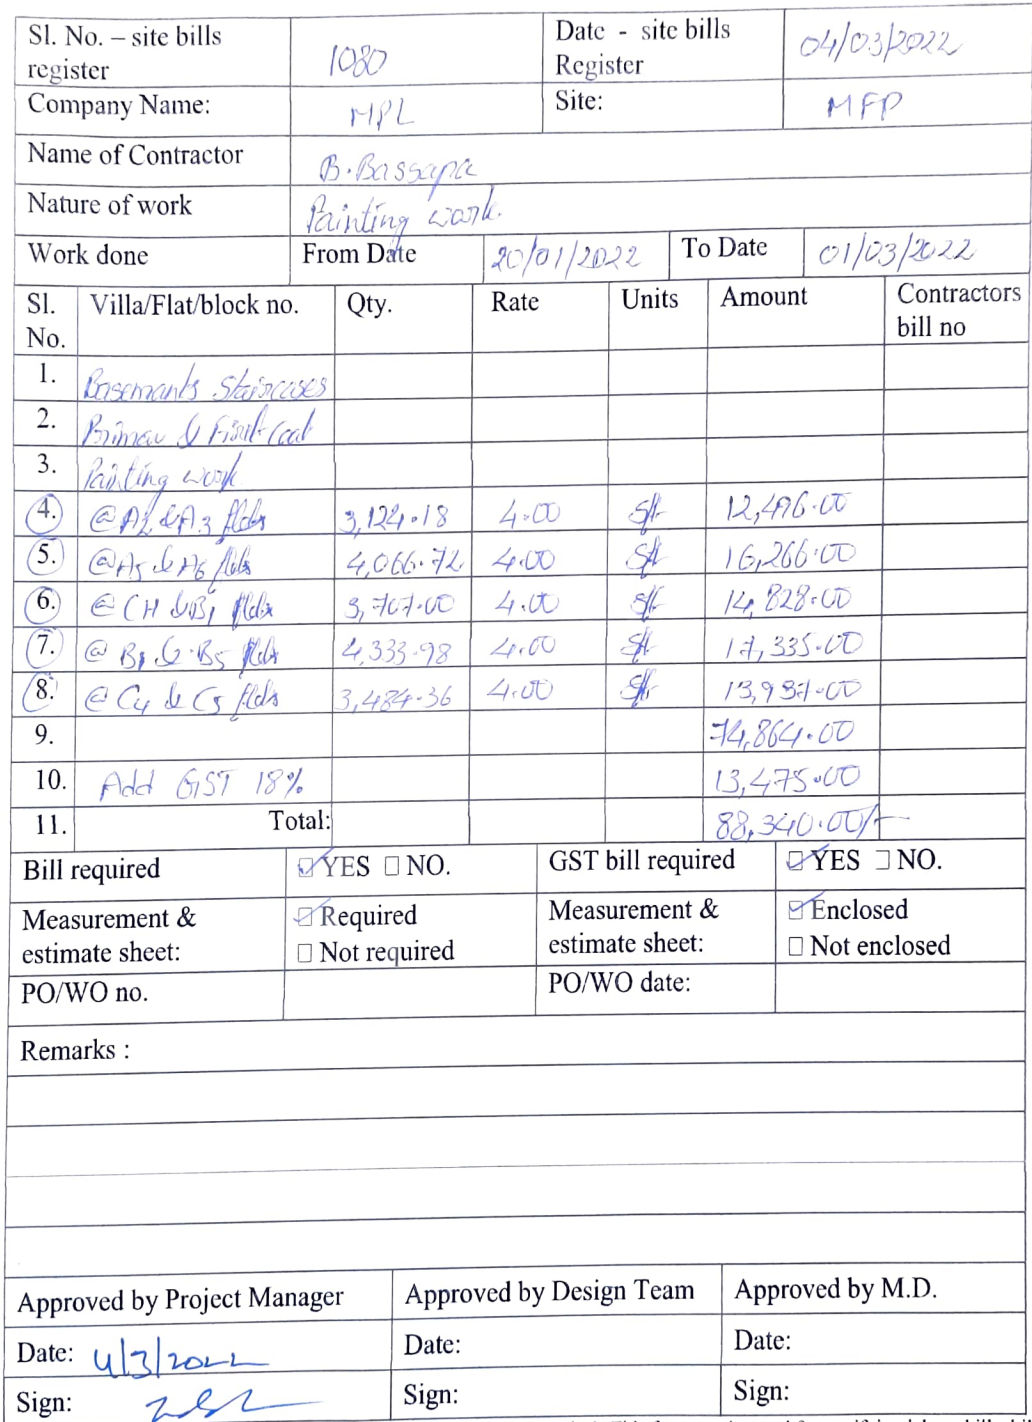 Sl. No. – site bills register 1080 Date - site bills Register 04/03/2022
Company Name: MPL Site: MFP
Name of Contractor B. Bassapa
Nature of work Painting work.
Work done From Date 20/01/2022 To Date 01/03/2022
Sl. No. Villa/Flat/block no. Qty. Rate Units Amount Contractors bill no
1. Basemants Staircases
2. Primar & First Coat
3. Painting work
4. @ A2 & A3 3,124.18 4.00 Sft 12,496.00
5. @ A5 & A6 4,066.72 4.00 Sft 16,266.00
6. @ CH & B1 3,707.00 4.00 Sft 14,828.00
7. & B5 4,333.98 4.00 Sft 17,335.00
8. @ C4 & C5 3,484.36 4.00 Sft 13,937.00
9. 74,864.00
10. Add GST 18% 13,475.00
11. Total: 88,340.00/-
Bill required ☑ YES □ NO. GST bill required ☑ YES □ NO.
Measurement & estimate sheet: ☑ Required □ Not required Measurement & estimate sheet: ☑ Enclosed □ Not enclosed
PO/WO no. PO/WO date:
Remarks :
Approved by Project Manager Approved by Design Team Approved by M.D.
Date: 4/3/2022 Date: Date:
Sign: Sign: Sign: